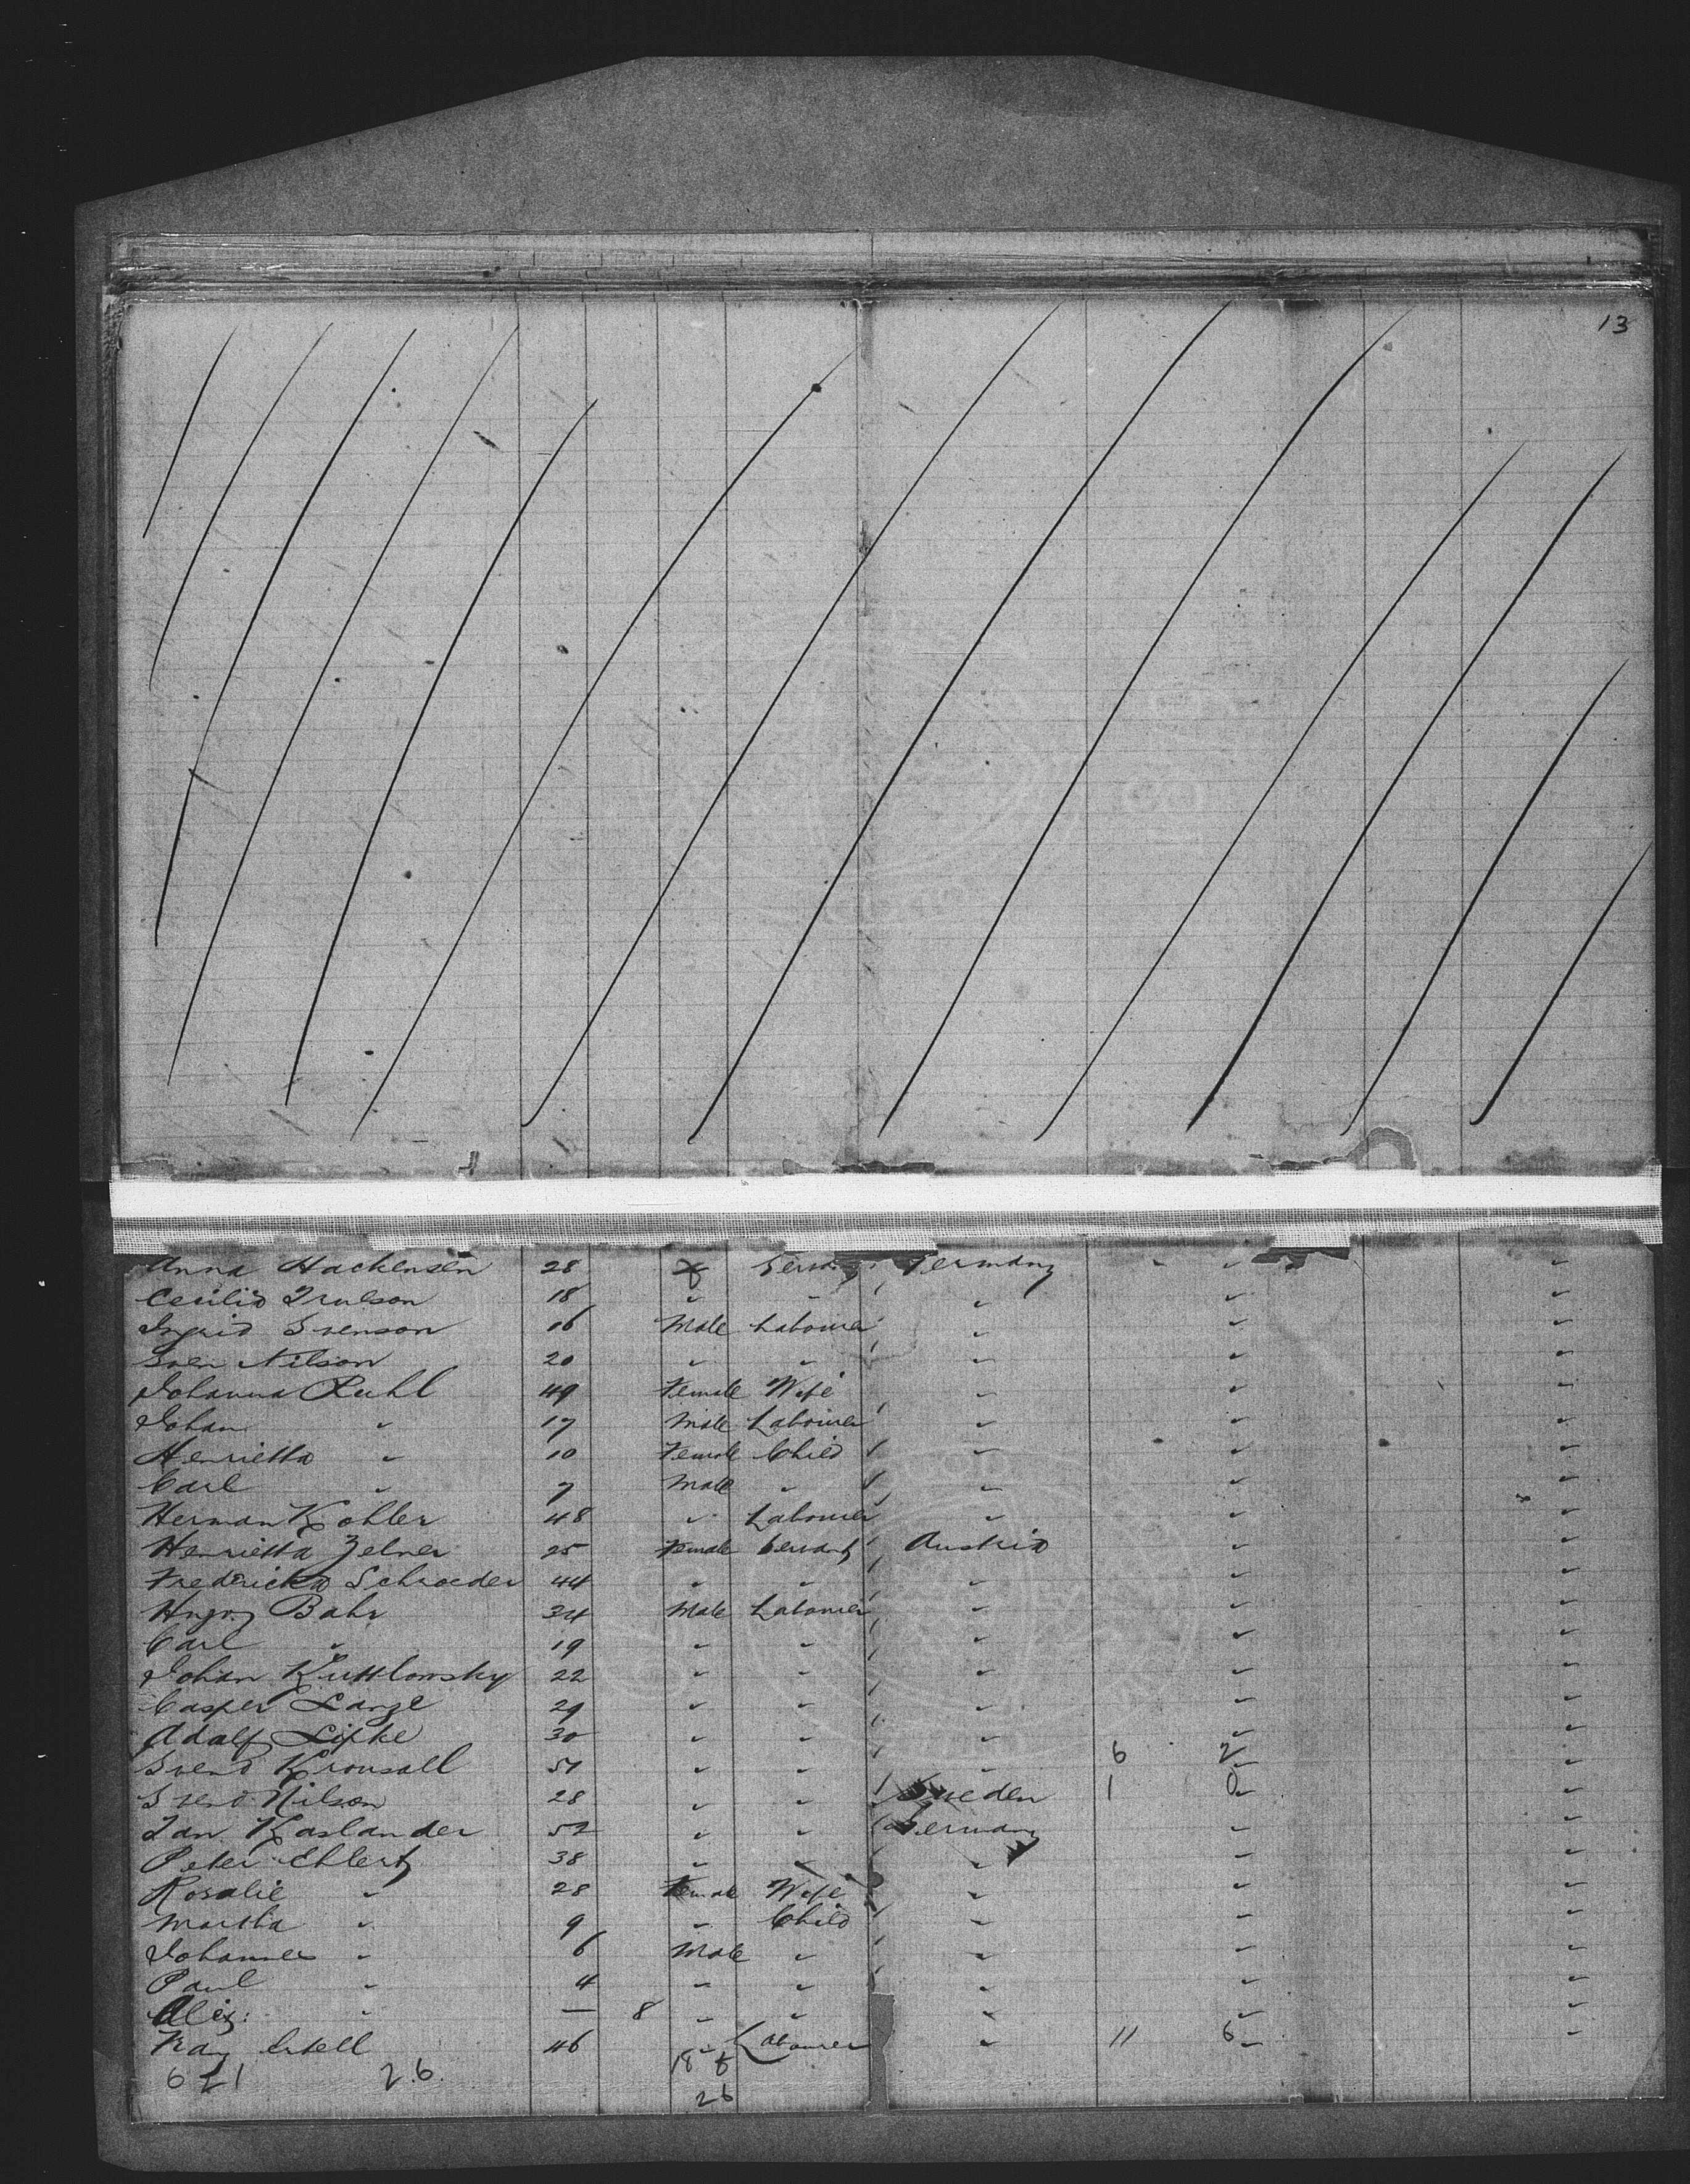 13
Anna Hackensen 28 f Servant Germany
Cecilia Trulson 18 " " "
Ingrid Svenson 16 Male Labourer "
Sven Nilson 20 " " "
Johanna Ruhl 49 Female Wife "
Johan " 17 Male Labourer "
Henrietta " 10 Female Child "
Carl " 7 Male " "
Herman Kohler 48 " Labourer "
Henrietta Zelner 25 Female Servant Austria
Fredericka Schroeder 44 " " "
Bahr 34 Male Labourer "
Carl " 19 " " "
Johan Kuttlowsky 22 " " "
Casper Lange 29 " " "
Adolf Lipke 30 " " "
Svend Kronsall 51 " " " 6 2
Svend Nilson 28 " " Sweden 1 0
Jan Kaslander 52 " " Germany
Peter Ehlert 38 " " "
Rosalie " 28 Female Wife "
Martha " 9 " Child "
Johannes " 6 Male " "
Paul " 4 " " "
Alex: " — 8 " " "
46 " Labourer " 11 6
621 26. 18 8
26